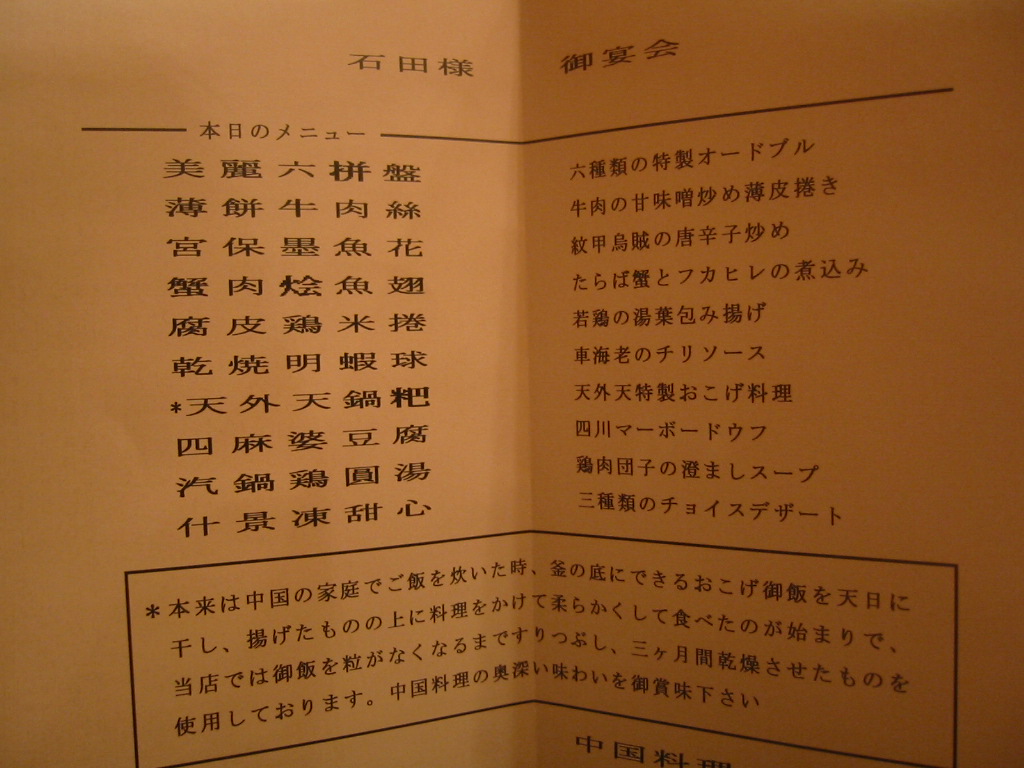 石田様 御宴会
本日のメニュー
美麗六拼盤 六種類の特製オードブル
薄餅牛肉絲 牛肉の甘味噌炒め薄皮捲き
宮保墨魚花 紋甲烏賊の唐辛子炒め
蟹肉烩魚翅 たらば蟹とフカヒレの煮込み
腐皮鶏米捲 若鶏の湯葉包み揚げ
乾焼明蝦球 車海老のチリソース
*天外天鍋粑 天外天特製おこげ料理
四麻婆豆腐 四川マーボードウフ
汽鍋鶏圓湯 鶏肉団子の澄ましスープ
什景凍甜心 三種類のチョイスデザート
*本来は中国の家庭でご飯を炊いた時、釜の底にできるおこげ御飯を天日に
干し、揚げたものの上に料理をかけて柔らかくして食べたのが始まりで、
当店では御飯を粒がなくなるまですりつぶし、三ヶ月間乾燥させたものを
使用しております。中国料理の奥深い味わいを御賞味下さい
中国料理